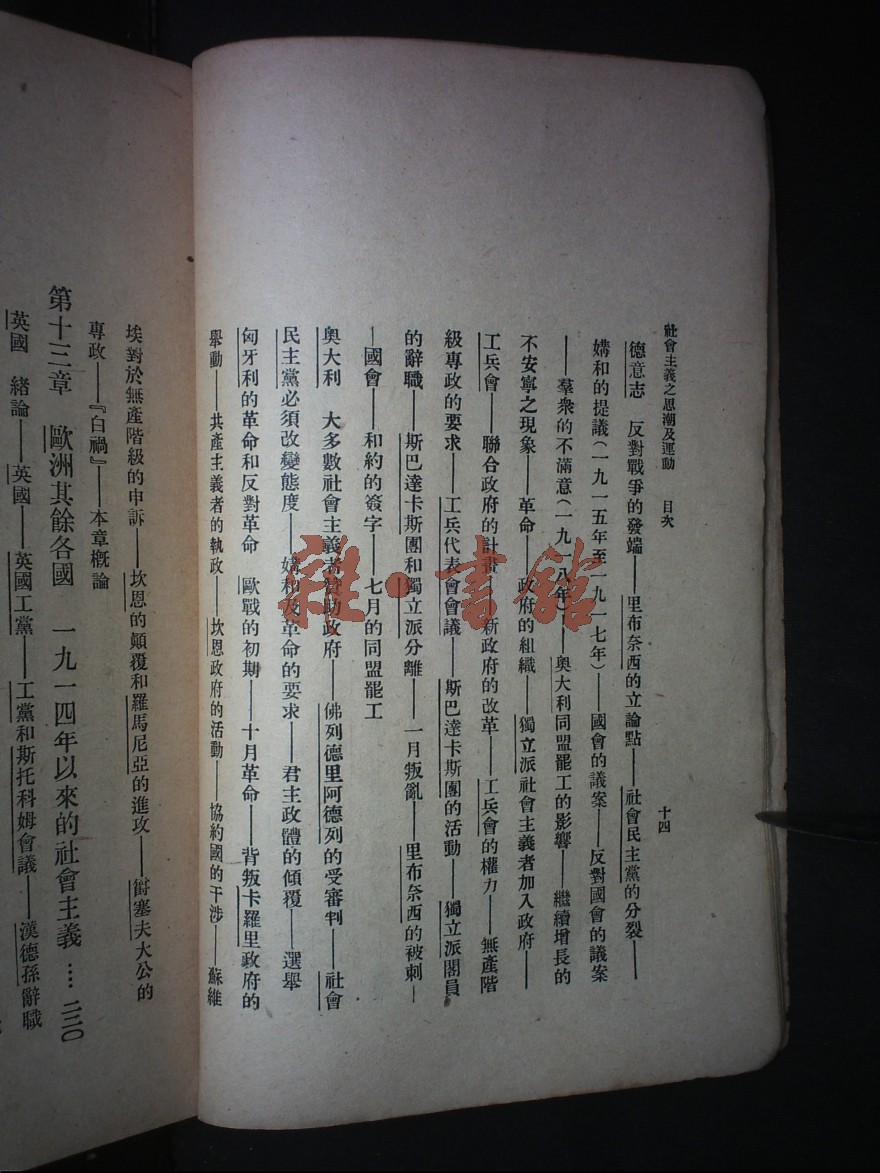 社會主義之思潮及運動 目次 十四
德意志 反對戰爭的發端——里布奈西的立論點——社會民主黨的分裂——
媾和的提議(一九一五年至一九一七年)——國會的議案——反對國會的議案
——羣衆的不滿意(一九一八年)——奧大利同盟罷工的影響——繼續增長的
不安寧之現象——革命——政府的組織——獨立派社會主義者加入政府——
工兵會——聯合政府的計畫——新政府的改革——工兵會的權力——無產階
級專政的要求——工兵代表會會議——斯巴達卡斯團的活動——獨立派閣員
的辭職——斯巴達卡斯團和獨立派分離——一月叛亂——里布奈西的被刺—
—國會——和約的簽字——七月的同盟罷工
奧大利 大多數社會主義者贊助政府——佛列德里阿德列的受審判——社會
民主黨必須改變態度——媾和及革命的要求——君主政體的傾覆——選舉
匈牙利的革命和反對革命 歐戰的初期——十月革命——背叛卡羅里政府的
舉動——共產主義者的執政——坎恩政府的活動——協約國的干涉——蘇維
埃對於無產階級的申訴——坎恩的顛覆和羅馬尼亞的進攻——爵塞夫大公的
專政——『白禍』——本章概論
第十三章 歐洲其餘各國 一九一四年以來的社會主義 …… 二二〇
英國 緒論——英國——英國工黨——工黨和斯托科姆會議——漢德孫辭職
雜·書館